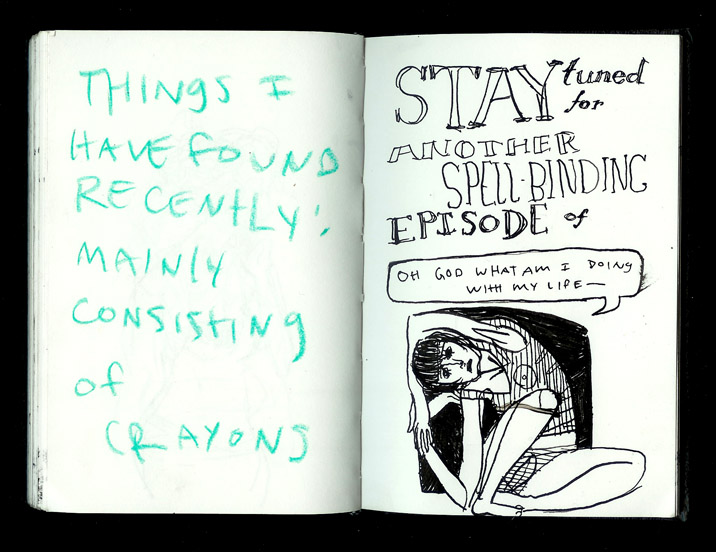 THINGS I
HAVE FOUND
RECENTLY:
MAINLY
CONSISTING
of
CRAYONS
STAY tuned
for
ANOTHER
SPELL-BINDING
EPISODE of
OH GOD WHAT AM I DOING
WITH MY LIFE—